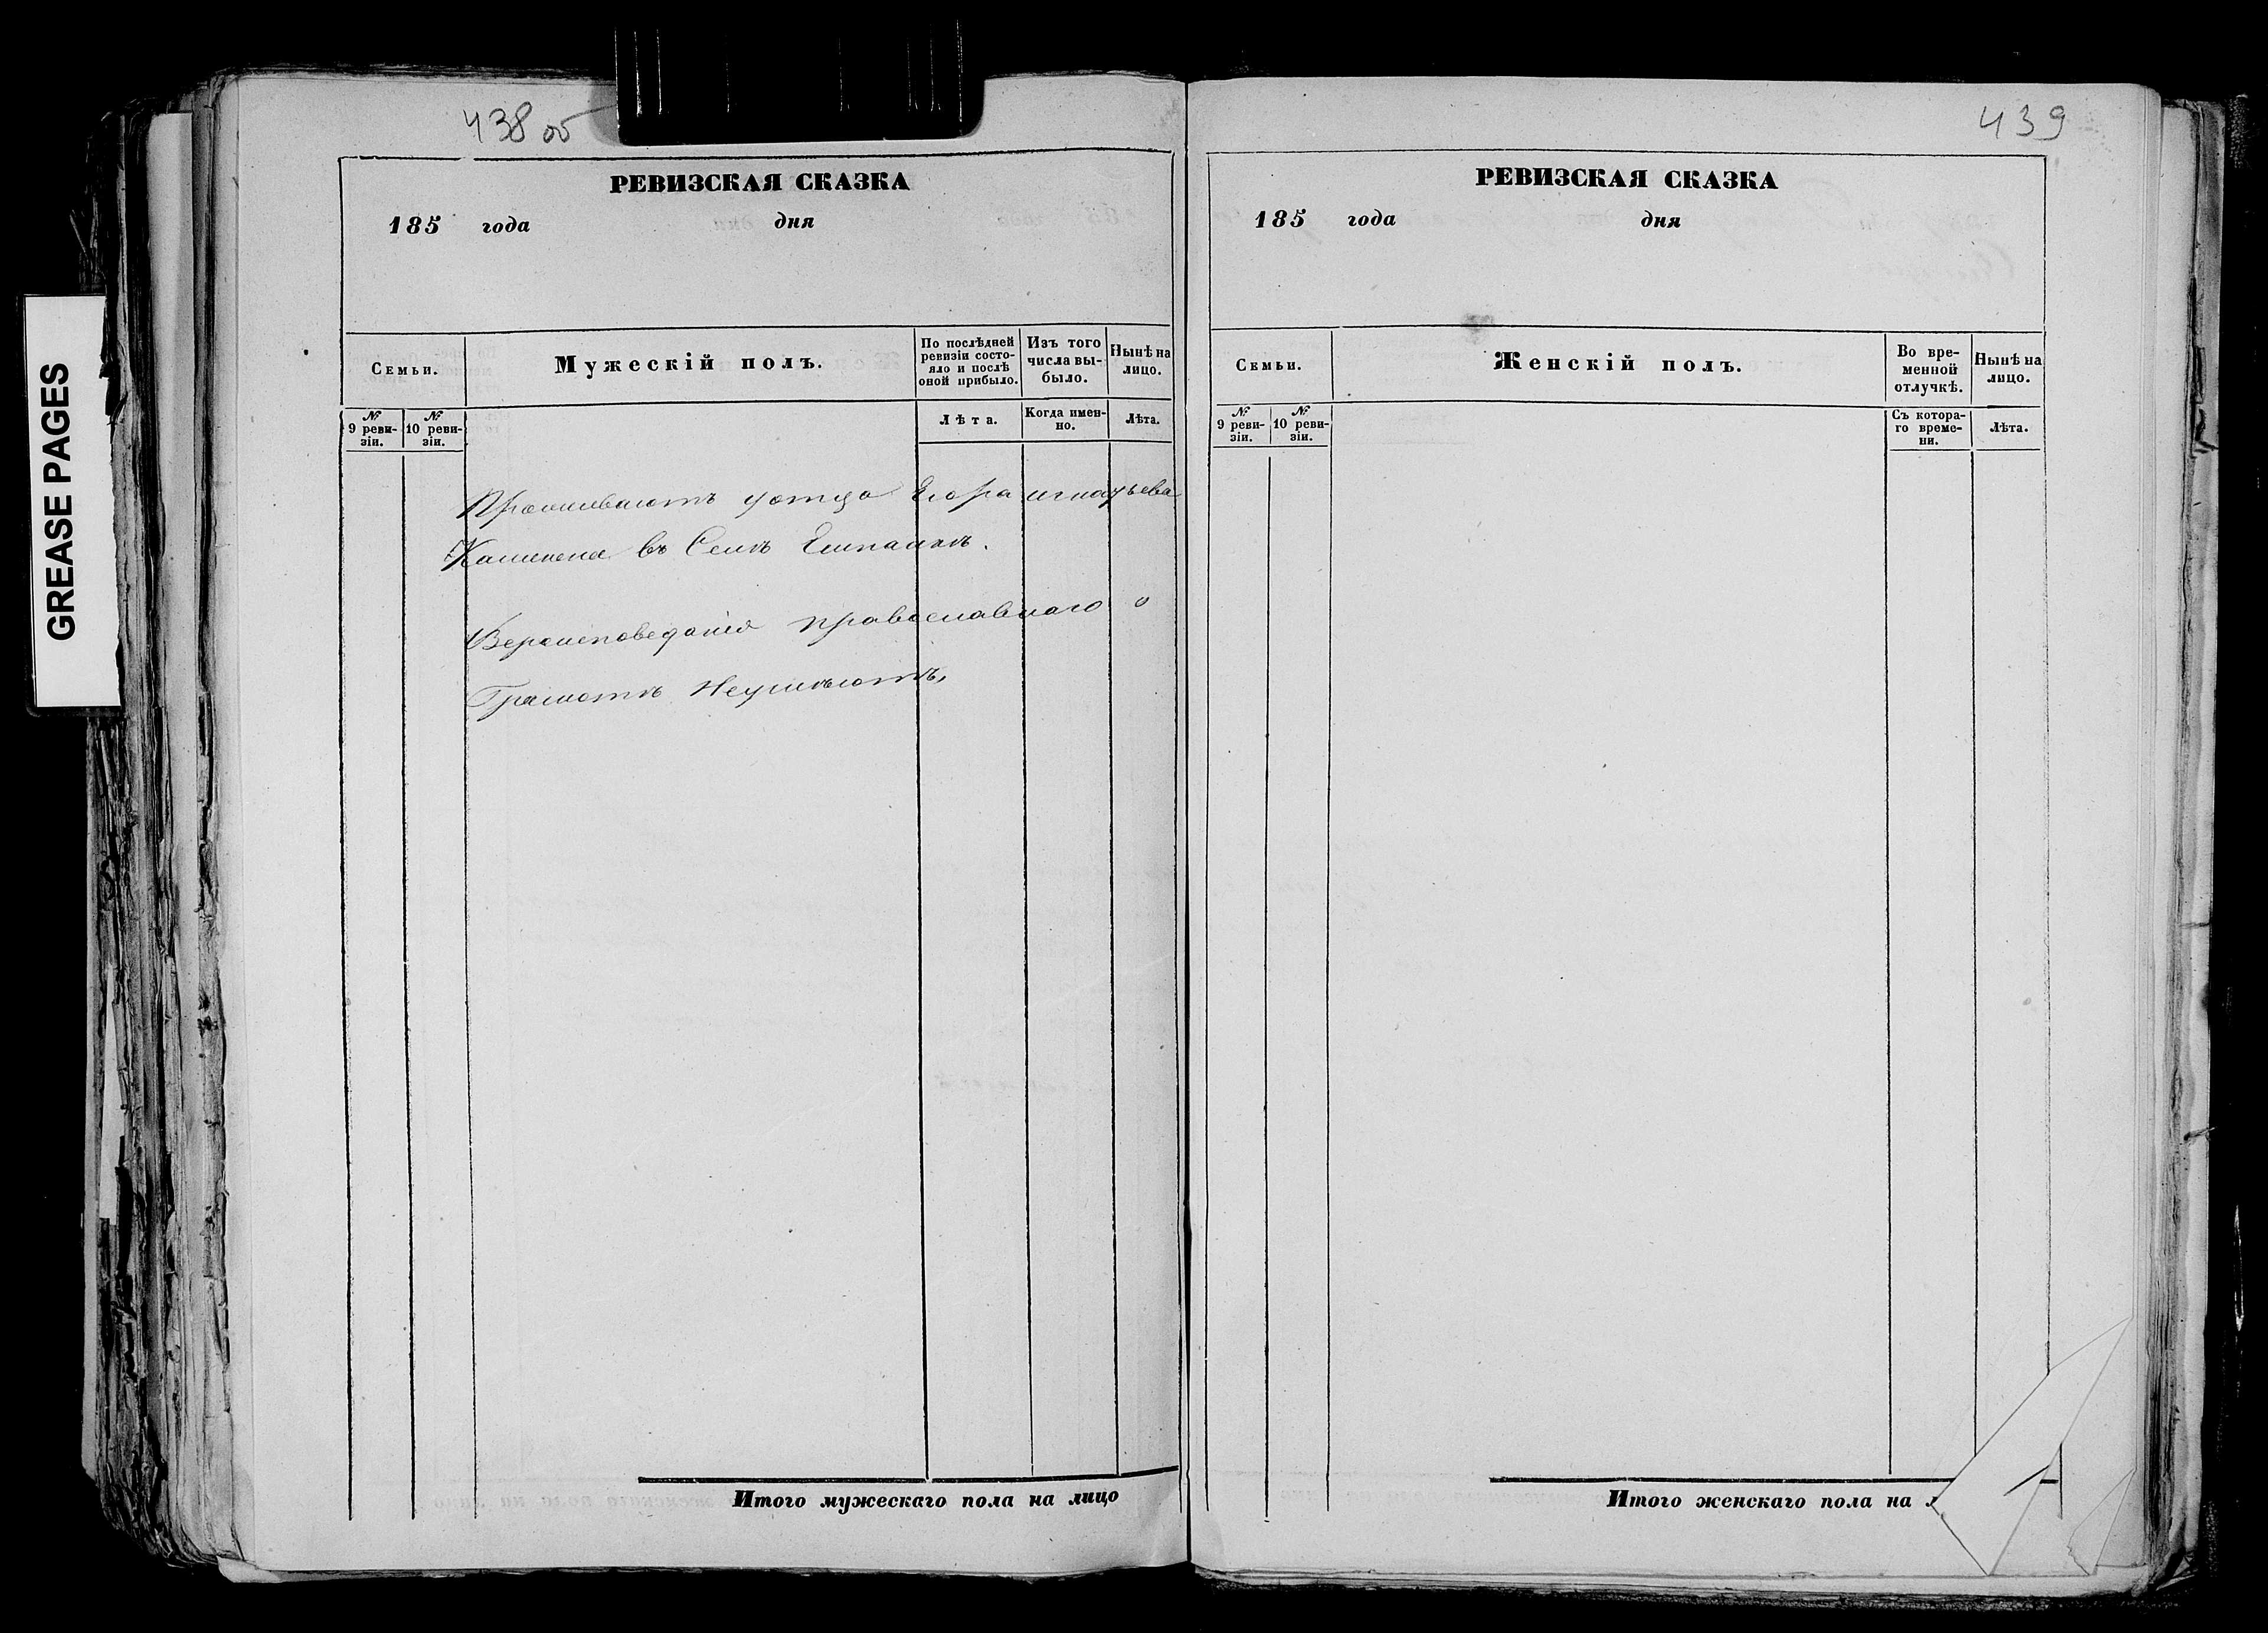 GREASE PAGES
438 об
РЕВИЗСКАЯ СКАЗКА
185 года дня
Семьи.
Мужескій полъ.
По послѣдней ревизіи состояло и послѣ оной прибыло.
Изъ того числа выбыло.
Нынѣ на лицо.
№ 9 ревизіи.
№ 10 ревизіи.
Лѣта.
Когда именно.
Лѣта.
Проживаютъ у отца Егора игнатьева
въ Селѣ
Вероисповедания православного
Грамотѣ Неумѣютъ,
Итого мужескаго пола на лицо
439
РЕВИЗСКАЯ СКАЗКА
185 года дня
Семьи.
Женскій полъ.
Во временной отлучкѣ.
Нынѣ на лицо.
№ 9 ревизіи.
№ 10 ревизіи.
Съ котораго времени.
Лѣта.
Итого женскаго пола на